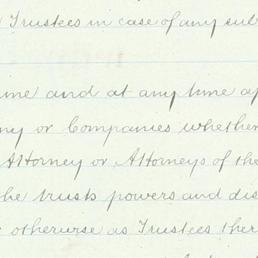 Trustees in case of any sub
and at any time
or Companies whether
Attorney or Attorneys of the
the trusts powers and dis
otherwise as Trustees